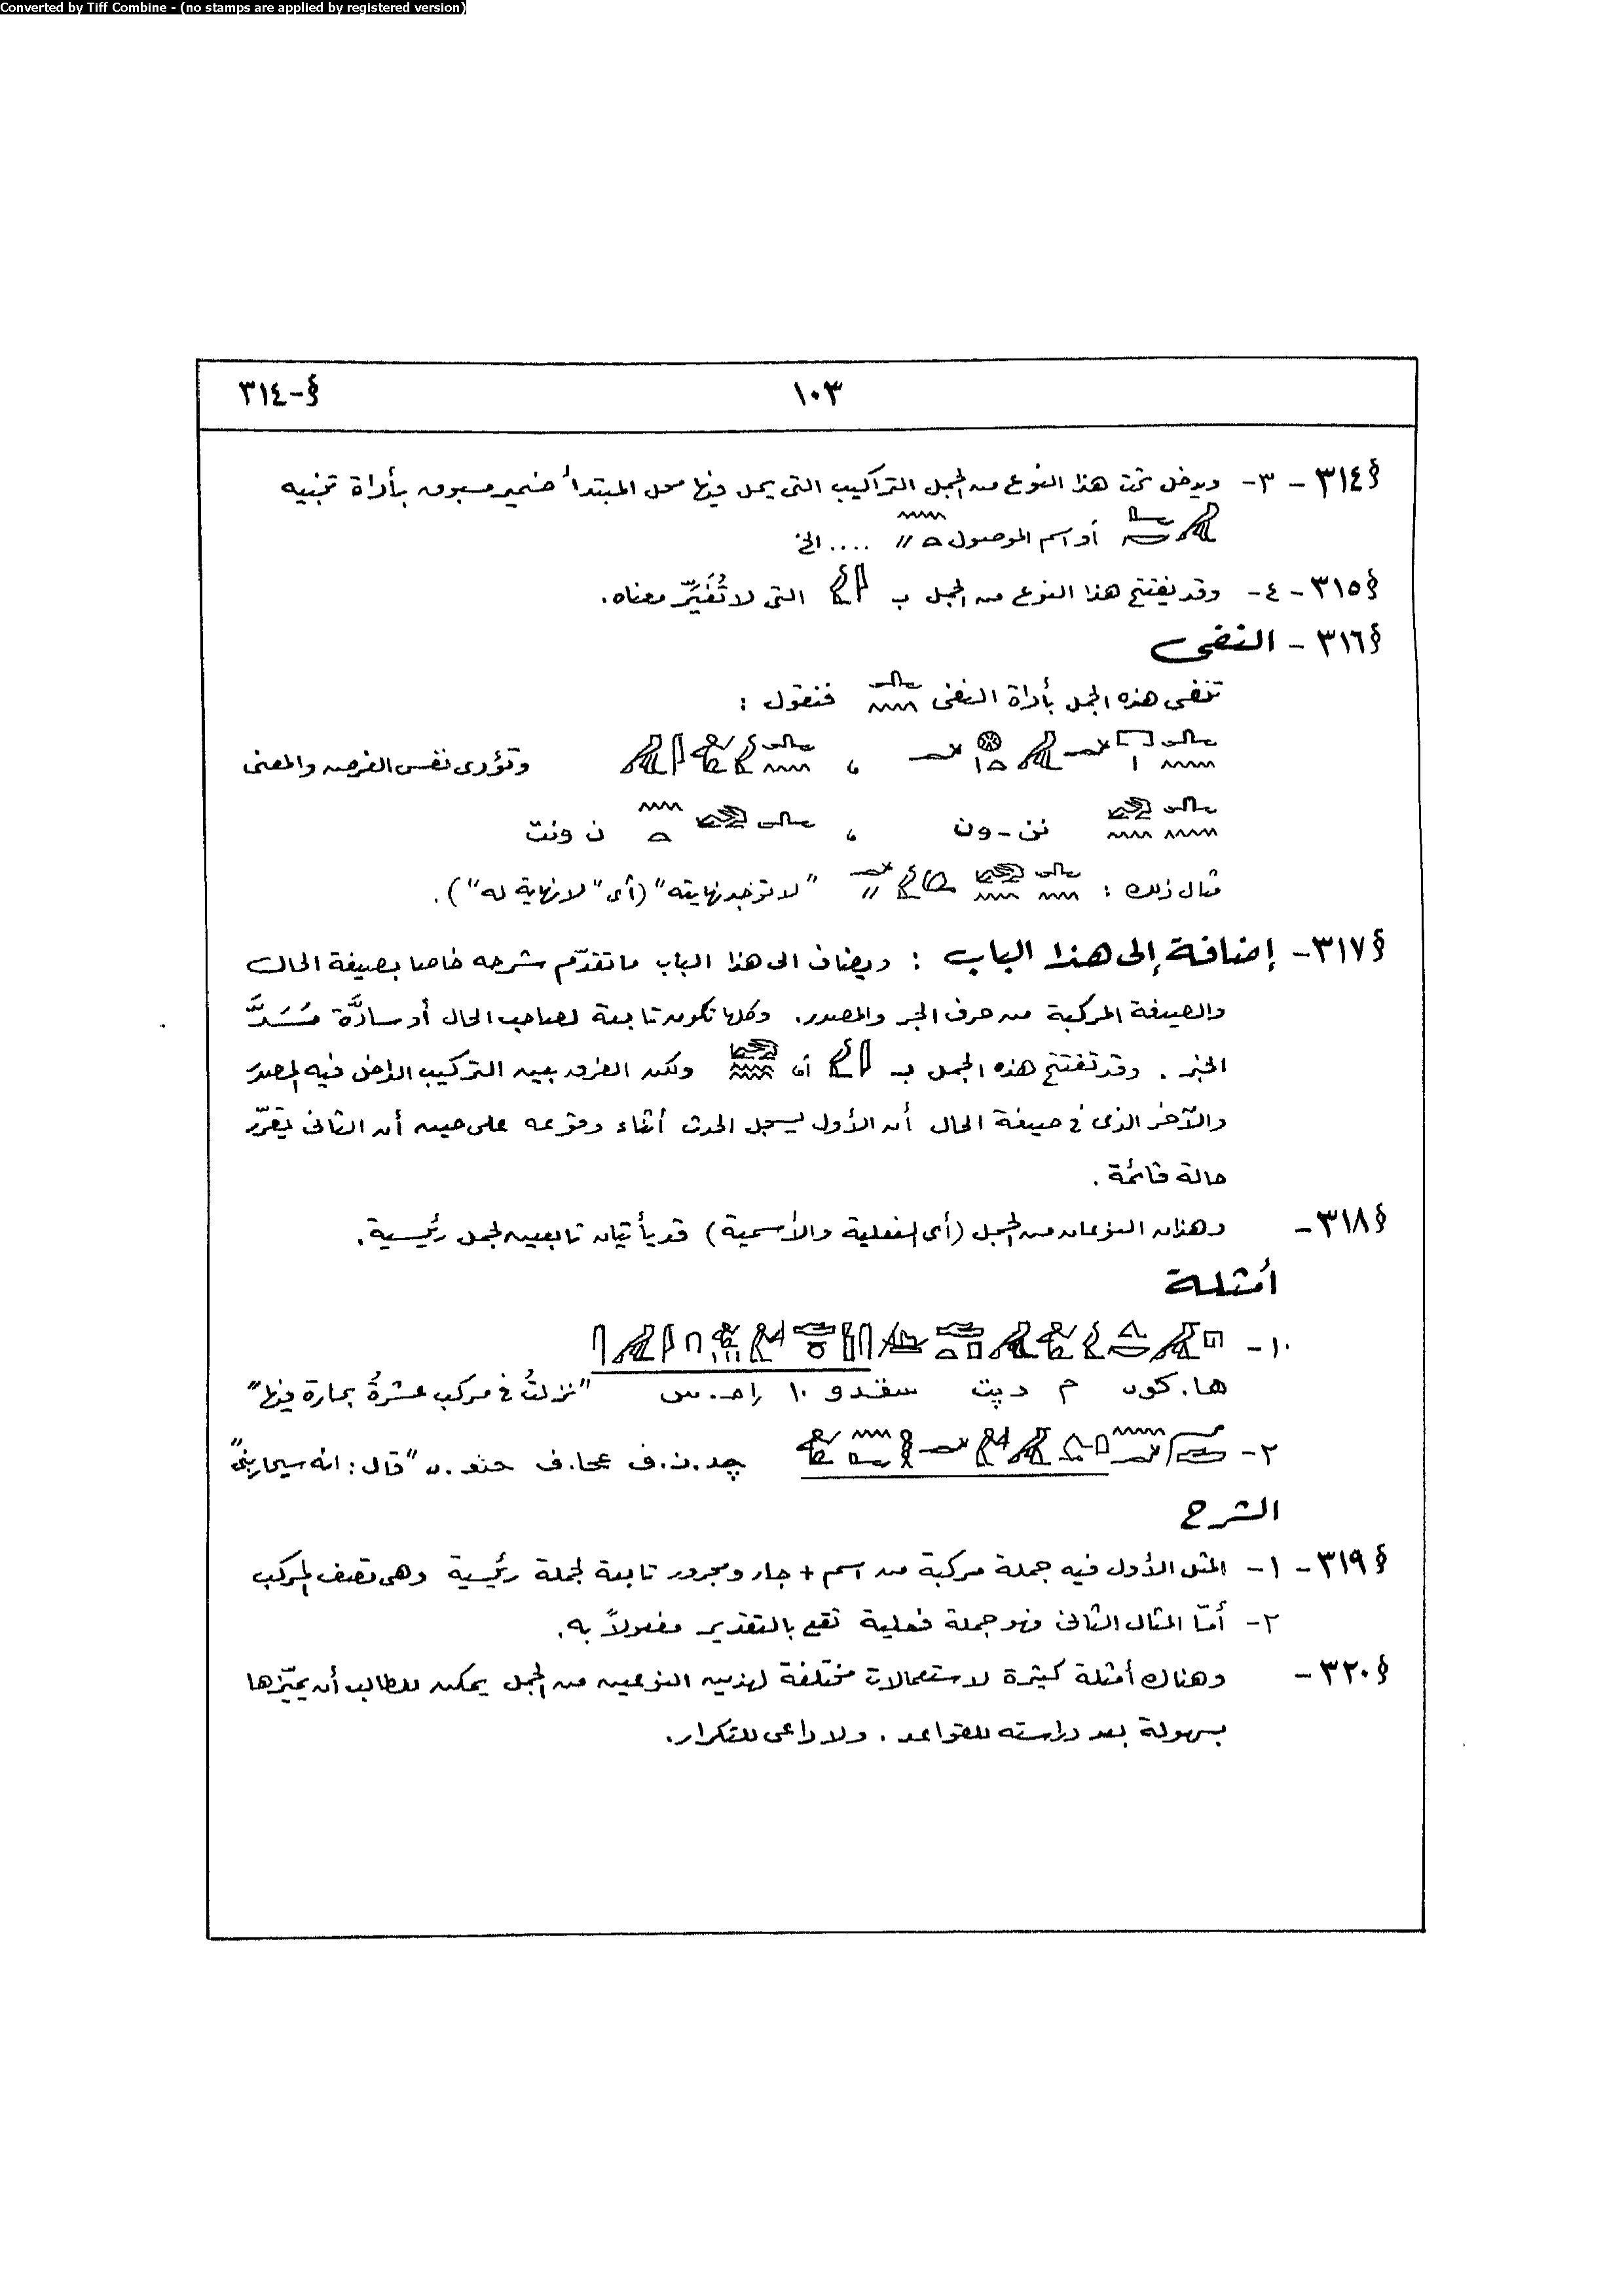 Converted by Tiff Combine - (no stamps are applied by registered version)
§-٣١٤ ١٠٣
§٣١٤ - ٣- ويدخل تحت هذا النوع من الجمل التراكيب التى يحل فيها محل المبتدأ ضمير مسبوق بأداة تنبيه
أو اسم الموصول .... الخ
§٣١٥ - ٤- وقد يفتتح هذا النوع من الجمل ب التى لا تُغَيِّر معناه.
§٣١٦ - النفى
تنفى هذه الجمل بأداة النفى فنقول :
، وتؤدى نفس الغرض والمعنى
نن - ون ، ن ونت
مثال ذلك : "لا توجد نهايته" (أى "لا نهاية له").
§٣١٧ - إضافة إلى هذا الباب : ويضاف الى هذا الباب ما تقدّم شرحه خاصا بصيغة الحال
والصيغة المركبة من حرف الجر والمصدر. وكلها تكون تابعة لصاحب الحال أو سادَّة مَسَدَّ
الخبر . وقد تفتتح هذه الجمل بـ أو ولكن الفرق بين التركيب الداخل فيه المصدر
والآخر الذى فى صيغة الحال أن الأول يسجل الحدث أثناء وقوعه على حين أن الثانى يقرّر
حالة قائمة .
§٣١٨ - وهذان النوعان من الجمل (أى الفعلية والأسمية) قد يأتيان تابعين لجمل رئيسية.
أمثلة
١- ها.كون م دپت سقدو ١٠ "نزلتُ فى مركب عشرةُ بحارة فيها"
٢- چد.ن.ف عحا.ف حنع.ى "قال: انه سيحاربنى"
الشرح
§٣١٩ - ١- المثل الأول فيه جملة مركبة من اسم + جار ومجرور تابعة لجملة رئيسية وهى تصف المركب
٢- أمّا المثال الثانى فهو جملة فعلية تقع بالتقدير مفعولاً به.
§٣٢٠ - وهناك أمثلة كثيرة لاستعمالات مختلفة لهذين النوعين من الجمل يمكن للطالب أن يميّزها
بسهولة بعد دراسته للقواعد . ولا داعى للتكرار.